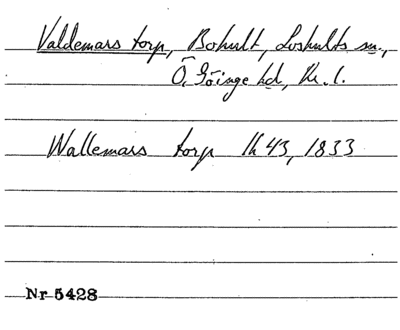 Valdemars torp, Bohult, Loshults sn.,
Ö. Göinge hd, Kr. l.
Wallemars torp lk 43, 1833
Nr 5428